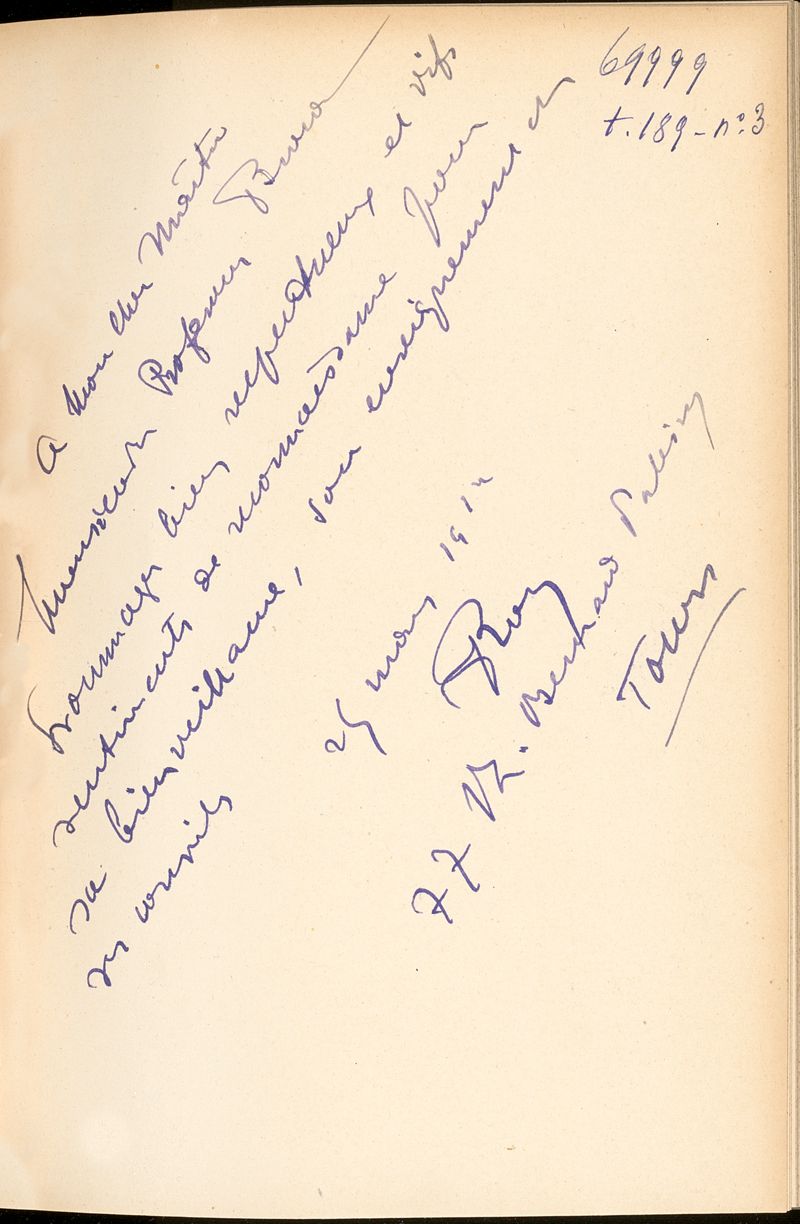 69999
t.189-n°3
A mon cher Maître
Monsieur le Professeur
Hommages bien respectueux et vifs
sentiments de reconnaissance pour
sa bienveillance, son enseignement et
ses conseils
29 mars 19
77 R. Bernard Palissy
Tours